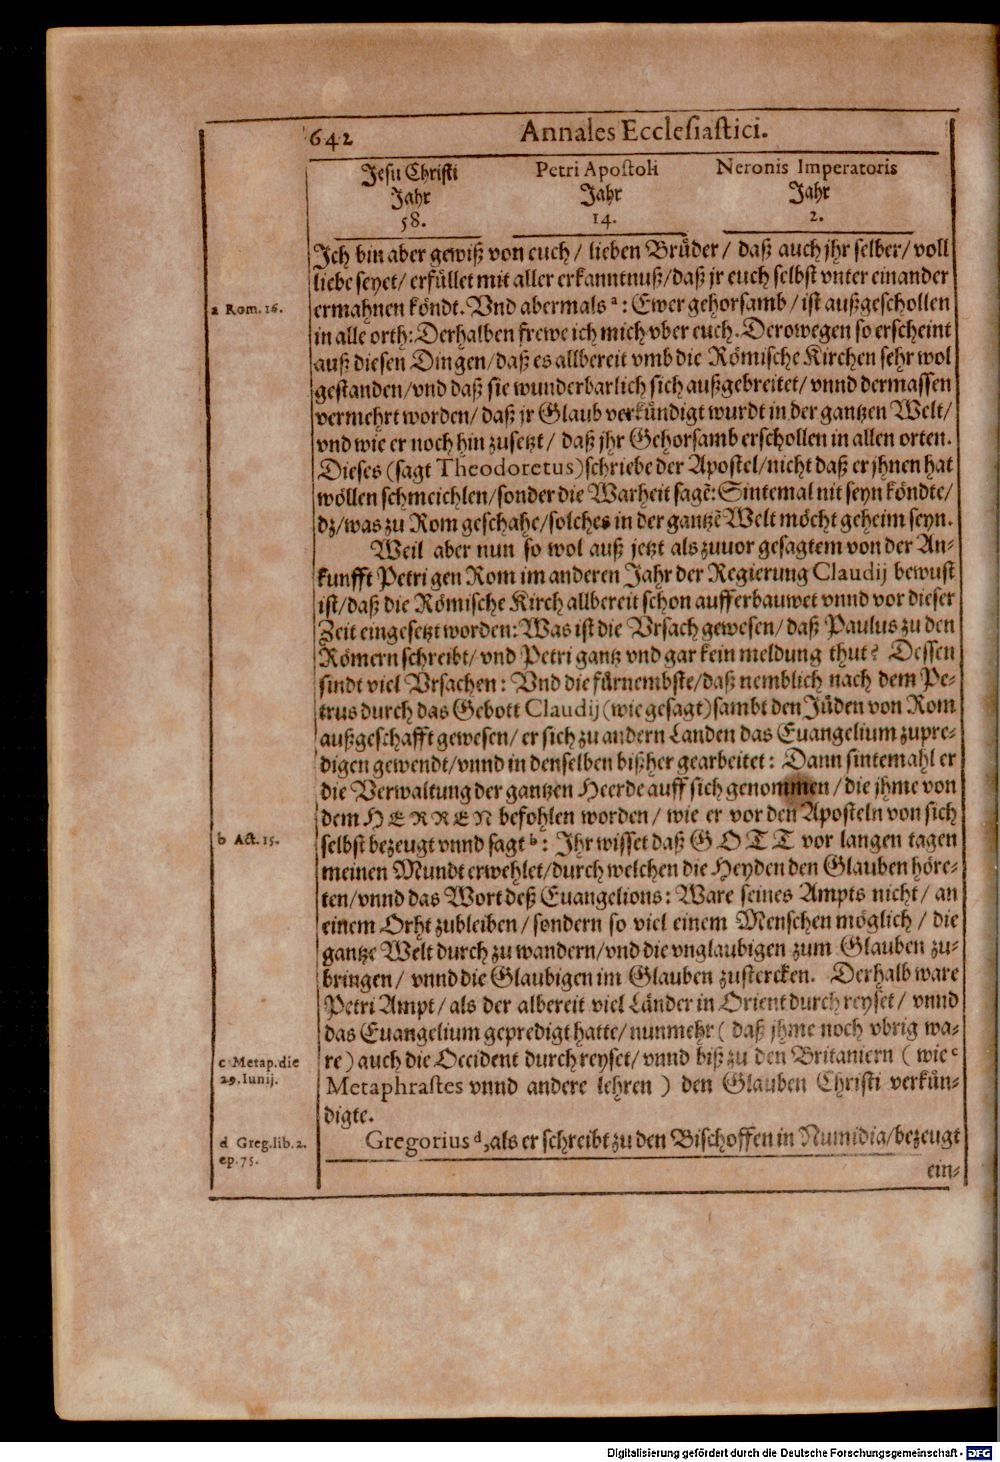 642 Annales Ecclesiastici.
Jesu Christi Petri Apostoli Neronis Imperatoris
Jahr Jahr Jahr
58. 14. 2.
Jch bin aber gewiß von euch / lieben Brüder / daß auch jhr selber / voll
liebe seyet / erfüllet mit aller erkanntnuß / daß jr euch selbst vnter einander
a Rom. 16. ermahnen köndt. Vnd abermals a : Ewer gehorsamb / ist außgeschollen
in alle orth: Derhalben frewe ich mich vber euch. Derowegen so erscheint
auß diesen Dingen / daß es allbereit vmb die Römische Kirchen sehr wol
gestanden / vnd daß sie wunderbarlich sich außgebreitet / vnnd dermassen
vermehrt worden / daß jr Glaub verkündigt wurdt in der gantzen Welt /
vnd wie er noch hin zusetzt / daß jhr Gehorsamb erschollen in allen orten.
Dieses (sagt Theodoretus) schriebe der Apostel / nicht daß er jhnen hat
wöllen schmeichlen / sonder die Warheit sagẽ: Sintemal nit seyn köndte /
dz / was zu Rom geschahe / solches in der gantzẽ Welt möcht geheim seyn.
Weil aber nun so wol auß jetzt als zuuor gesagtem von der An-
kunfft Petri gen Rom im anderen Jahr der Regierung Claudij bewust
ist / daß die Römische Kirch allbereit schon aufferbauwet vnnd vor dieser
Zeit eingesetzt worden: Was ist die Vrsach gewesen / daß Paulus zu den
Römern schreibt / vnd Petri gantz vnd gar kein meldung thut? Dessen
sindt viel Vrsachen: Vnd die fürnembste / daß nemblich nach dem Pe-
trus durch das Gebott Claudij (wie gesagt) sambt den Jüden von Rom
außgeschafft gewesen / er sich zu andern Landen das Euangelium zupre-
digen gewendt / vnnd in denselben bißher gearbeitet: Dann sintemahl er
die Verwaltung der gantzen Heerde auff sich genommen / die jhme von
dem HERREN befohlen worden / wie er vor den Aposteln von sich
b Act. 15. selbst bezeugt vnnd sagt b : Jhr wisset daß GOTT vor langen tagen
meinen Mundt erwehlet / durch welchen die Heyden den Glauben höre-
ten / vnnd das Wort deß Euangelions: Ware seines Ampts nicht / an
einem Orht zubleiben / sondern so viel einem Menschen möglich / die
gantze Welt durch zu wandern / vnd die vnglaubigen zum Glauben zu-
bringen / vnnd die Glaubigen im Glauben zustercken. Derhalb ware
Petri Ampt / als der albereit viel Länder in Orient durch reyset / vnnd
das Euangelium gepredigt hatte / nunmehr ( daß jhme noch vbrig wa-
c Metap. die re ) auch die Occident durch reyset / vnnd biß zu den Britaniern ( wie c
29. Iunij. Metaphrastes vnnd andere lehren ) den Glauben Christi verkün-
digte.
d Greg. lib. 2. Gregorius d , als er schreibt zu den Bischoffen in Numidia / bezeugt
ep. 75. ein-
Digitalisierung gefördert durch die Deutsche Forschungsgemeinschaft - DFG